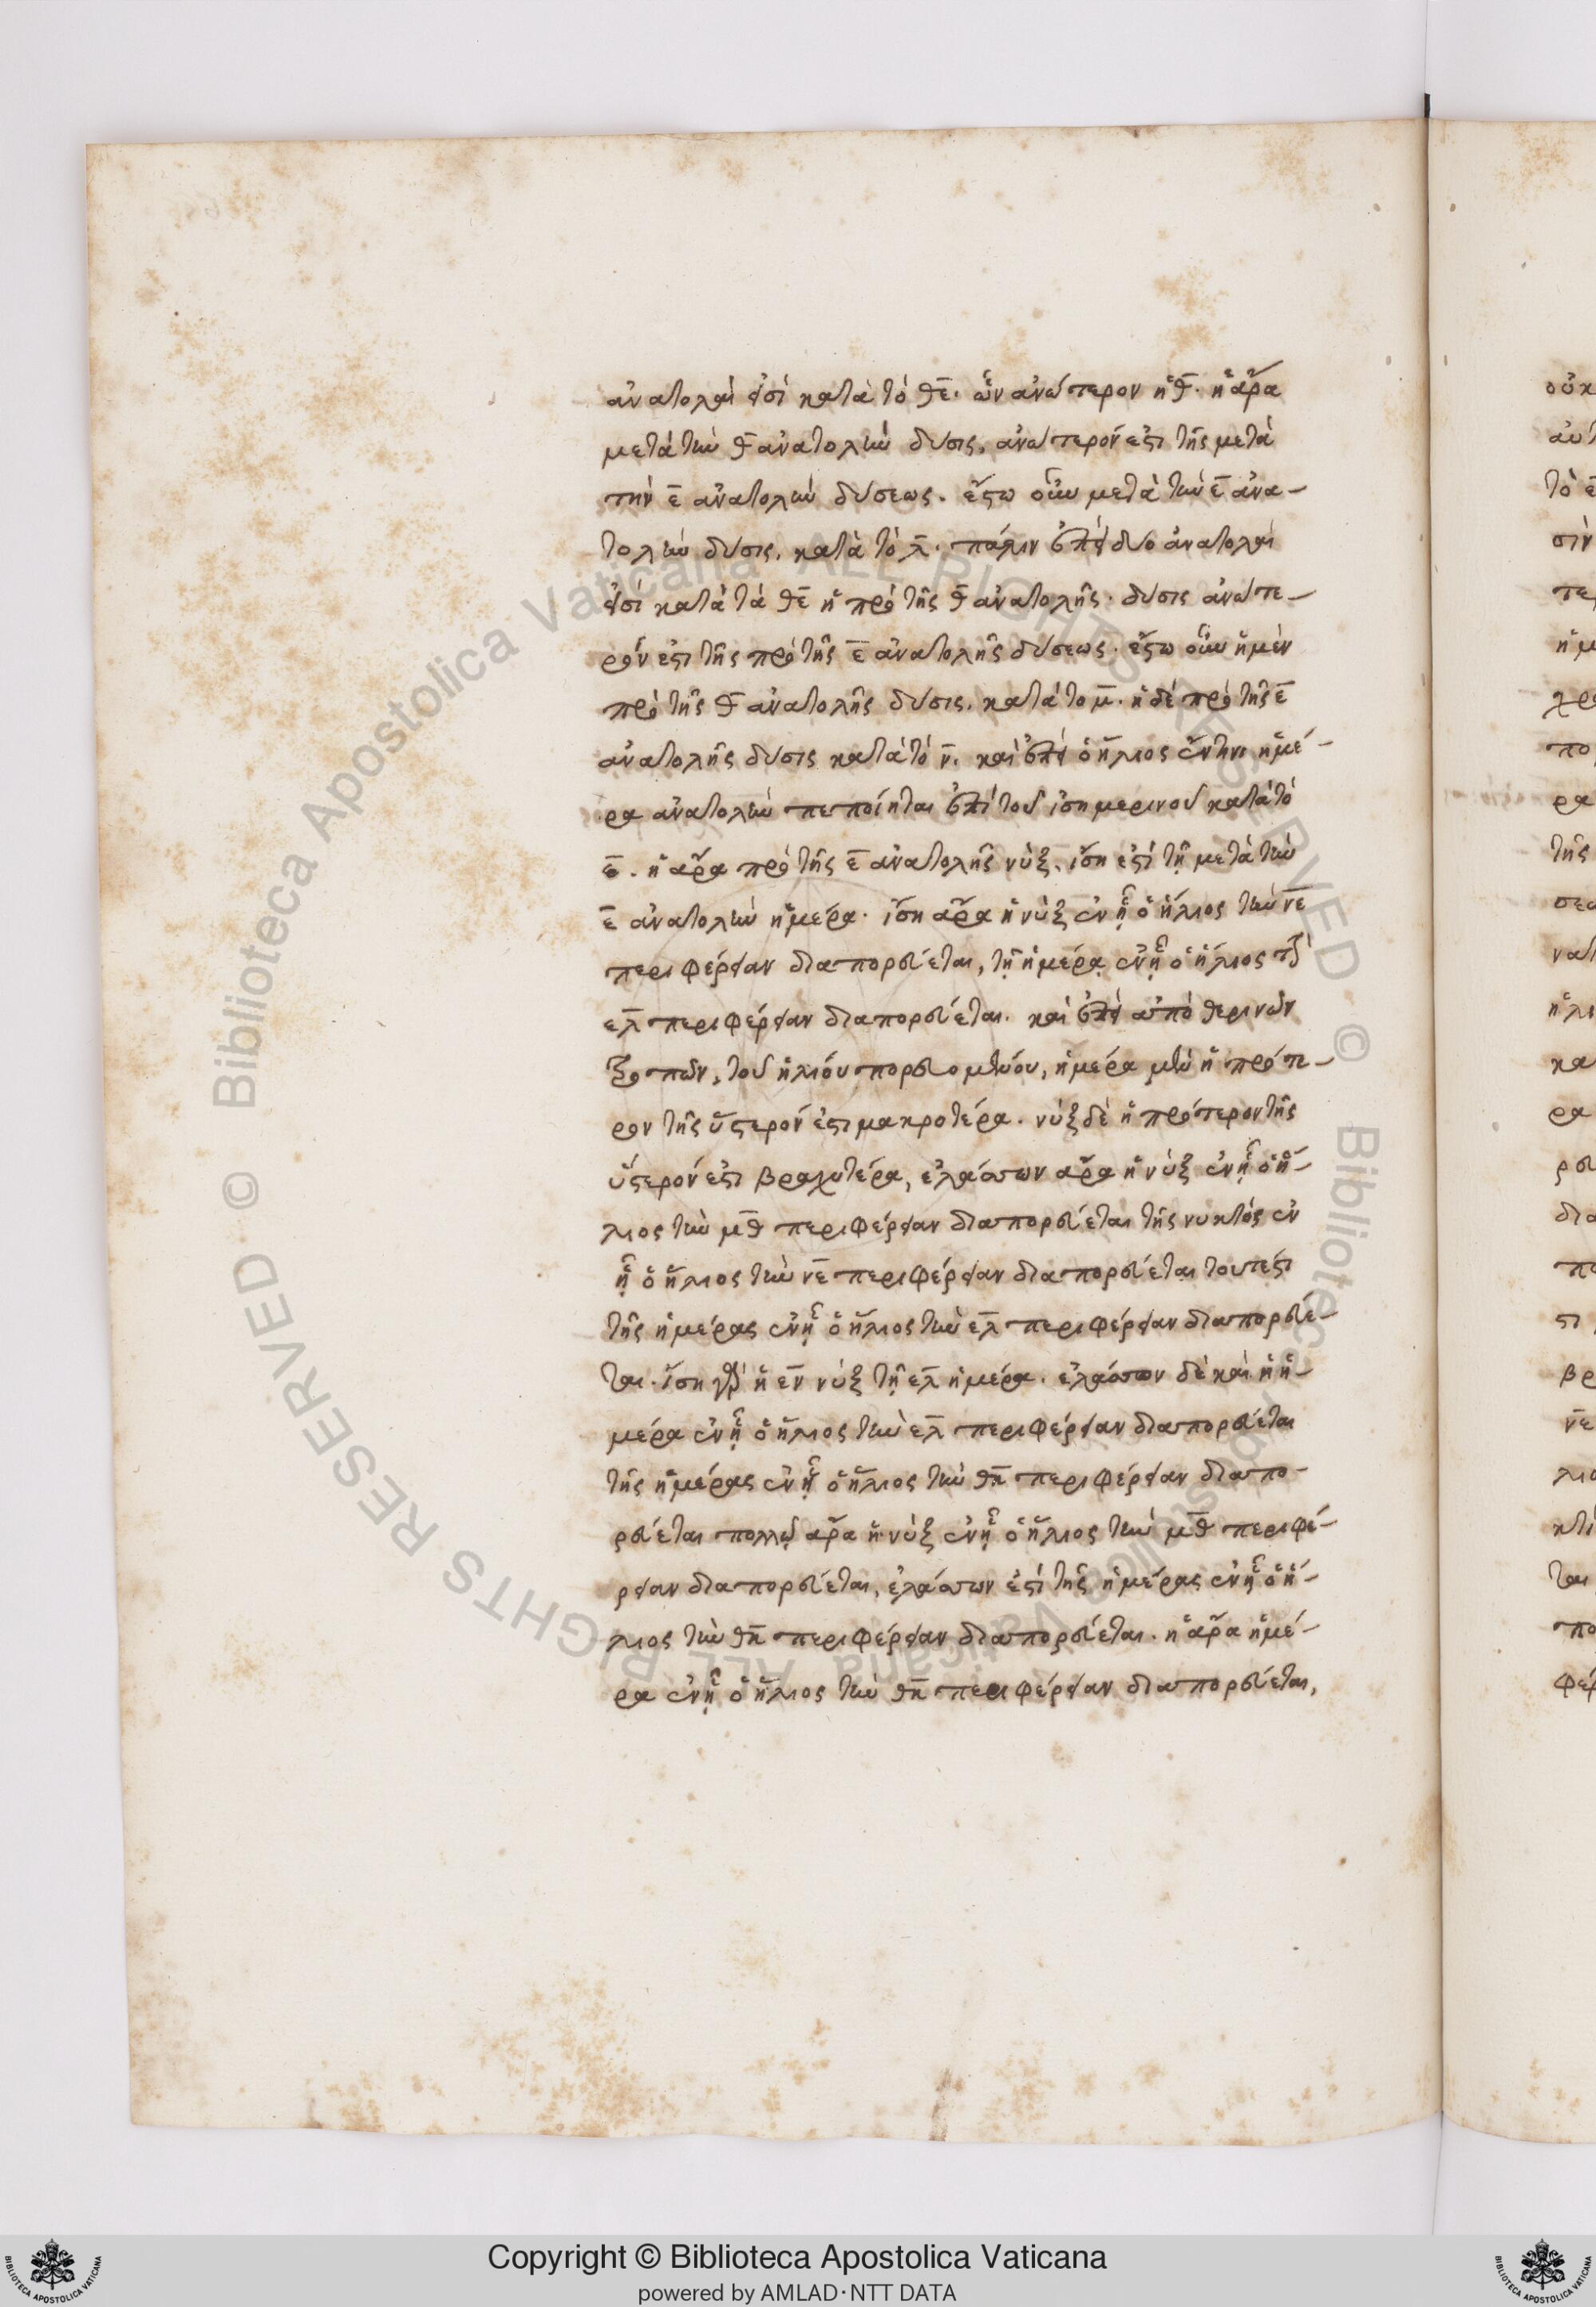 ἀνατολαί εἰσι κατὰ τὸ θ̅ε̅. ὧν ἀνώτερον ἡ θ̅. ἡ ἄρα
μετὰ τὴν θ̅ ἀνατολὴν δύσις, ἀνώτερόν ἐστι τῆς μετὰ
τὴν ε̅ ἀνατολὴν δύσεως. ἔστω οὖν μετὰ τὴν ε̅ ἀνα-
τολὴν δύσις, κατὰ τὸ λ̅. πάλιν ἐπεὶ δύο ἀνατολαί
εἰσι κατὰ τὰ θ̅ε̅ ἡ πρὸ τῆς θ̅ ἀνατολῆς. δύσις ἀνώτε-
ρόν ἐστι τῆς πρὸ τῆς ε̅ ἀνατολῆς δύσεως. ἔστω οὖν ἡ μὲν
πρὸ τῆς θ̅ ἀνατολῆς δύσις, κατὰ το μ̅. ἡ δὲ πρὸ τῆς ε̅
ἀνατολῆς δύσις κατὰ τὸ ν̅. καὶ ἐπεὶ ὁ ἥλιος ἔν τινι ἡμέ-
ρα ἀνατολὴν πεποίηται ἐπὶ τοῦ ἰσημερινοῦ κατὰ τὸ
ε̅. ἡ ἄρα πρὸ τῆς ε̅ ἀνατολῆς νὺξ, ἴση ἐστὶ τῇ μετὰ τὴν
ε̅ ἀνατολὴν ἡμέρα. ἴση ἄρα ἡ νὺξ ἐν ᾗ ὁ ἥλιος τὴν ν̅ε̅
περιφέρειαν διαπορεύεται, τῇ ἡμέρᾳ ἐν ᾗ ὁ ἥλιος τὴν
ε̅λ̅ περιφέρειαν διαπορεύεται. καὶ ἐπεὶ ἀπὸ θερινῶν
τροπῶν, τοῦ ἡλίου πορευομένου, ἡμέρα μὲν ἡ πρότε-
ρον τῆς ὕστερόν ἐστι μακροτέρα. νὺξ δὲ ἡ πρότερον τῆς
ὕστερόν ἐστι βραχυτέρα, ἐλάσσων ἄρα ἡ νὺξ ἐν ᾗ ὁ ἥ-
λιος τὴν μ̅θ̅ περιφέρειαν διαπορεύεται τῆς νυκτός ἐν
ᾗ ὁ ἥλιος τὴν ν̅ε̅ περιφέρειαν διαπορεύεται τουτέστι
τῆς ἡμέρας ἐν ᾗ ὁ ἥλιος τὴν ε̅λ̅ περιφέρειαν διαπορεύε-
ται. ἴση γὰρ ἡ ε̅ν̅ νὺξ τῇ ε̅λ̅ ἡμέρα. ἐλάσσων δὲ καὶ ἡ ἡ-
μέρα ἐν ᾗ ὁ ἥλιος τὴν ε̅λ̅ περιφέρειαν διαπορεύεται
τῆς ἡμέρας ἐν ᾗ ὁ ἥλιος τὴν θ̅κ̅ περιφέρειαν διαπο-
ρεύεται πολλῷ ἄρα ἡ νὺξ ἐν ᾗ ὁ ἥλιος τὴν μ̅θ̅ περιφέ-
ρειαν διαπορεύεται, ἐλάσσων ἐστὶ τῆς ἡμέρας ἐν ᾗ ὁ ἥ-
λιος τὴν θ̅κ̅ περιφέρειαν διαπορεύεται. ἡ ἄρα ἡμέ-
ρα ἐν ᾗ ὁ ἥλιος τὴν θ̅κ̅ περιφέρειαν διαπορεύεται,
Copyright © Biblioteca Apostolica Vaticana
powered by AMLAD·NTT DATA